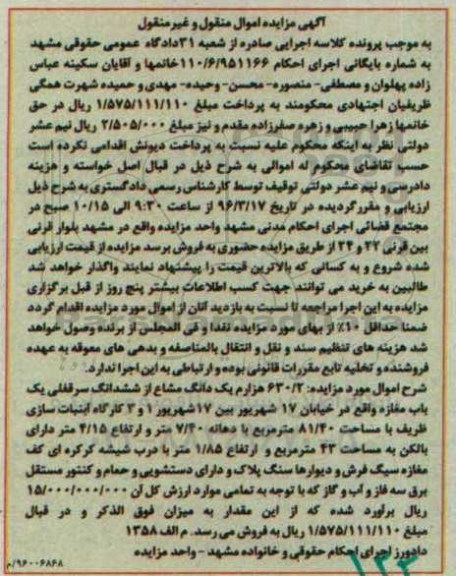 آگهی مزایده اموال منقول و غیر منقول
به موجب پرونده کلاسه اجرایی صادره از شعبه ۳۱دادگاه عمومی حقوقی مشهد
به شماره بایگانی اجرای احکام ۱۱۰/۶/۹۵۱۱۶۶خانمها و آقایان سکینه عباس
زاده پهلوان و مصطفی- منصوره- محسن- وحیده- مهدی و حمیده شهرت همگی
ظریفیان اجتهادی محکومند به پرداخت مبلغ ۱/۵۷۵/۱۱۱/۱۱۰ ریال در حق
خانمها زهرا حبیبی و زهره صفرزاده مقدم و نیز مبلغ ۲/۵۰۵/۰۰۰ ریال نیم عشر
دولتی نظر به اینکه محکوم علیه نسبت به پرداخت دیونش اقدامی نکرده است
حسب تقاضای محکوم له اموالی به شرح ذیل در قبال اصل خواسته و هزینه
دادرسی و نیم عشر دولتی توقیف توسط کارشناس رسمی دادگستری به شرح ذیل
ارزیابی و مقرر گردیده در تاریخ ۹۶/۳/۱۷ از ساعت ۹:۳۰ الی ۱۰/۱۵ صبح در
مجتمع قضائی اجرای احکام مدنی مشهد واحد مزایده واقع در مشهد بلوار قرنی
بین قرنی ۲۲ و ۲۴ از طریق مزایده حضوری به فروش برسد مزایده از قیمت ارزیابی
شده شروع و به کسانی که بالاترین قیمت را پیشنهاد نمایند واگذار خواهد شد
طالبین به خرید می توانند جهت کسب اطلاعات بیشتر پنج روز از قبل برگزاری
مزایده به این اجرا مراجعه تا نسبت به بازدید آنان از اموال مورد مزایده اقدام گردد
ضمنا حداقل ۱۰٪ از بهای مورد مزایده نقدا و فی المجلس از برنده وصول خواهد
شد هزینه های تنظیم سند و نقل و انتقال بالمناصفه و بدهی های معوقه به عهده
فروشنده و تخلیه تابع مقررات قانونی بوده و ارتباطی به این اجرا ندارد.
شرح اموال مورد مزایده: ۶۳۰/۲ هزارم یک دانگ مشاع از ششدانگ سرقفلی یک
باب مغازه واقع در خیابان ۱۷ شهریور بین ۱۷شهریور ۱ و ۳ کارگاه آبنبات سازی
ظریف با مساحت ۸۱/۴۰ مترمربع با دهانه ۷/۴۰ متر و ارتفاع ۴/۱۵ متر دارای
بالکن به مساحت ۴۳ مترمربع و ارتفاع ۱/۸۵ متر با درب شیشه کرکره ای کف
مغازه سیگ فرش و دیوارها سنگ پلاک و دارای دستشویی و حمام و کنتور مستقل
برق سه فاز و آب و گاز که با توجه به تمامی موارد ارزش کل آن ۱۵/۰۰۰/۰۰۰/۰۰۰
ریال برآورد شده که از این مقدار به میزان فوق الذکر و در قبال
مبلغ ۱/۵۷۵/۱۱۱/۱۱۰ ریال به فروش می رسد. م الف ۱۳۵۸
دادورز اجرای احکام حقوقی و خانواده مشهد - واحد مزایده
۹۶۰۰۶۸۶۸/م